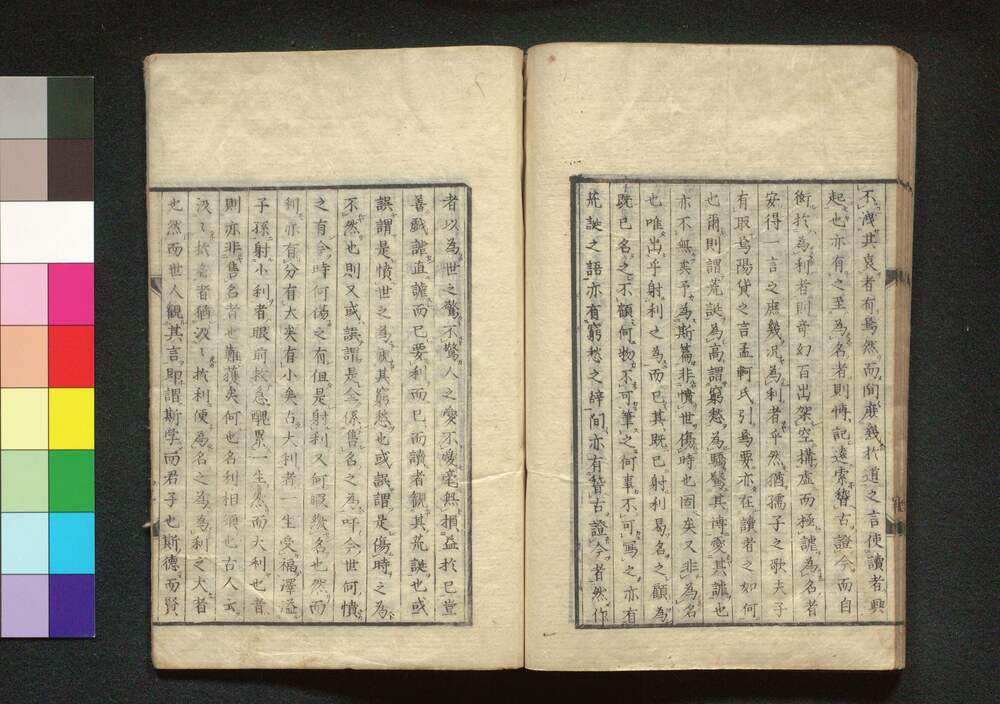 不洩其哀者有焉然而間庶幾於道之言使讀者興
起也亦有之至為名者則博記遠索替古證今而自
衒於為利者則奇幻百出架空搆虛而極謔為名者
安得一言之庶幾況為利者乎然猶孺子之歌夫子
有取焉陽貨之言孟軻氏引焉要亦在讀者之如何
也爾則謂荒誕為高謂窮愁為騷驚其博愛其謔也
亦不無矣予為斯篇非憤世傷時也固矣又非為名
也唯出乎射利之為而已其既已射利易名之顧為
既已名之不顧何物不可筆之何事不可寫之亦有
荒誕之語亦有窮愁之辞間亦有替古證今者然作
者以為世之驚不驚人之愛不愛毫無損益於已豈
善戲謔直謔而已要利而已而讀者観其荒誕也或
誤謂是憤世之為観其窮愁也或誤謂是傷時之為
不然也則又或誤謂是全係售名之為吁今世何憤
之有今時何傷之有但是射利又何暇幾名也然而
利亦有分有大矣有小矣占大利者一生受福澤溢
子孫射小利者眼前救急醜累一生然而大利也者
則亦非售名者也難獲矣何也名利相須也古人云
汲々於名者猶汲々於利便為名之為為利之大者
也然而世人観其言即謂斯学而君子也斯德而賢